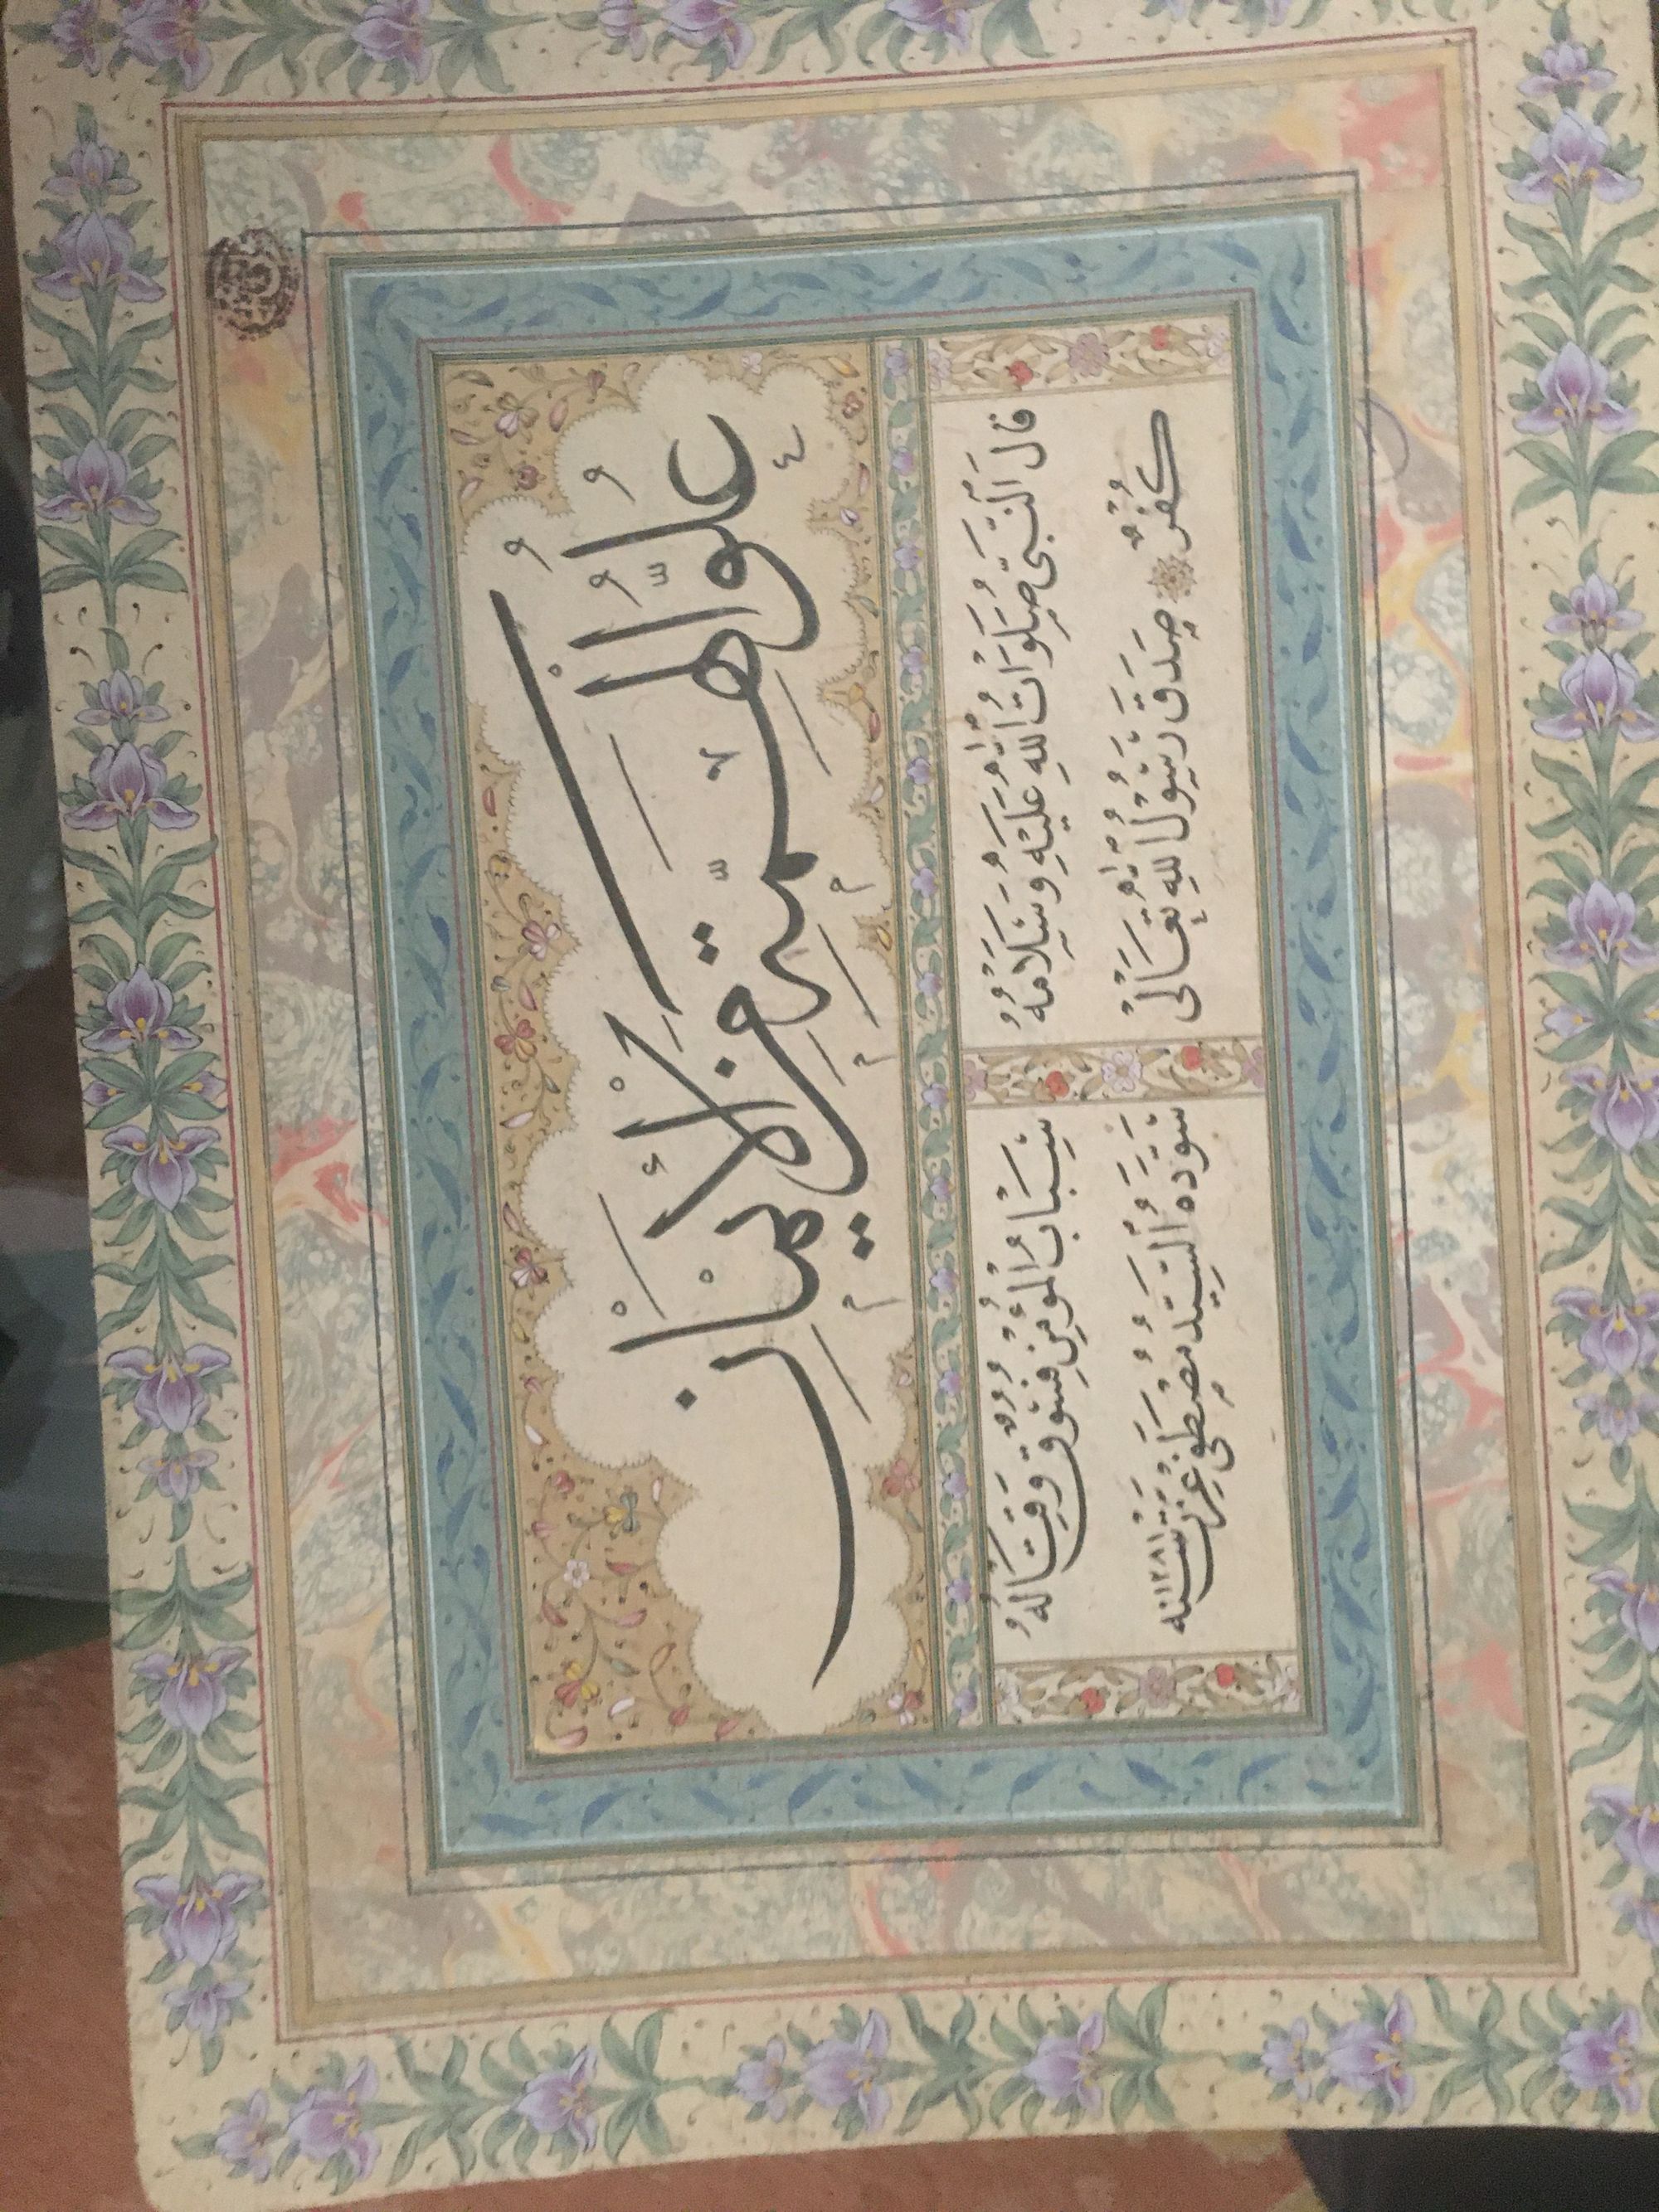 عُلُوُّ الْهِمَّةِ مِنَ الْإِيمَانِ
قَالَ النَّبِيُّ صَلَوَاتُ اللهِ عَلَيْهِ وَسَلَامُهُ
سِبَابُ الْمُؤْمِنِ فُسُوقٌ وَقِتَالُهُ
كُفْرٌ صَدَقَ رَسُولُ اللهِ تَعَالَى
سَوَّدَهُ السَّيِّد مُصْطَفَى عِزَّت سنه ١٢٨١